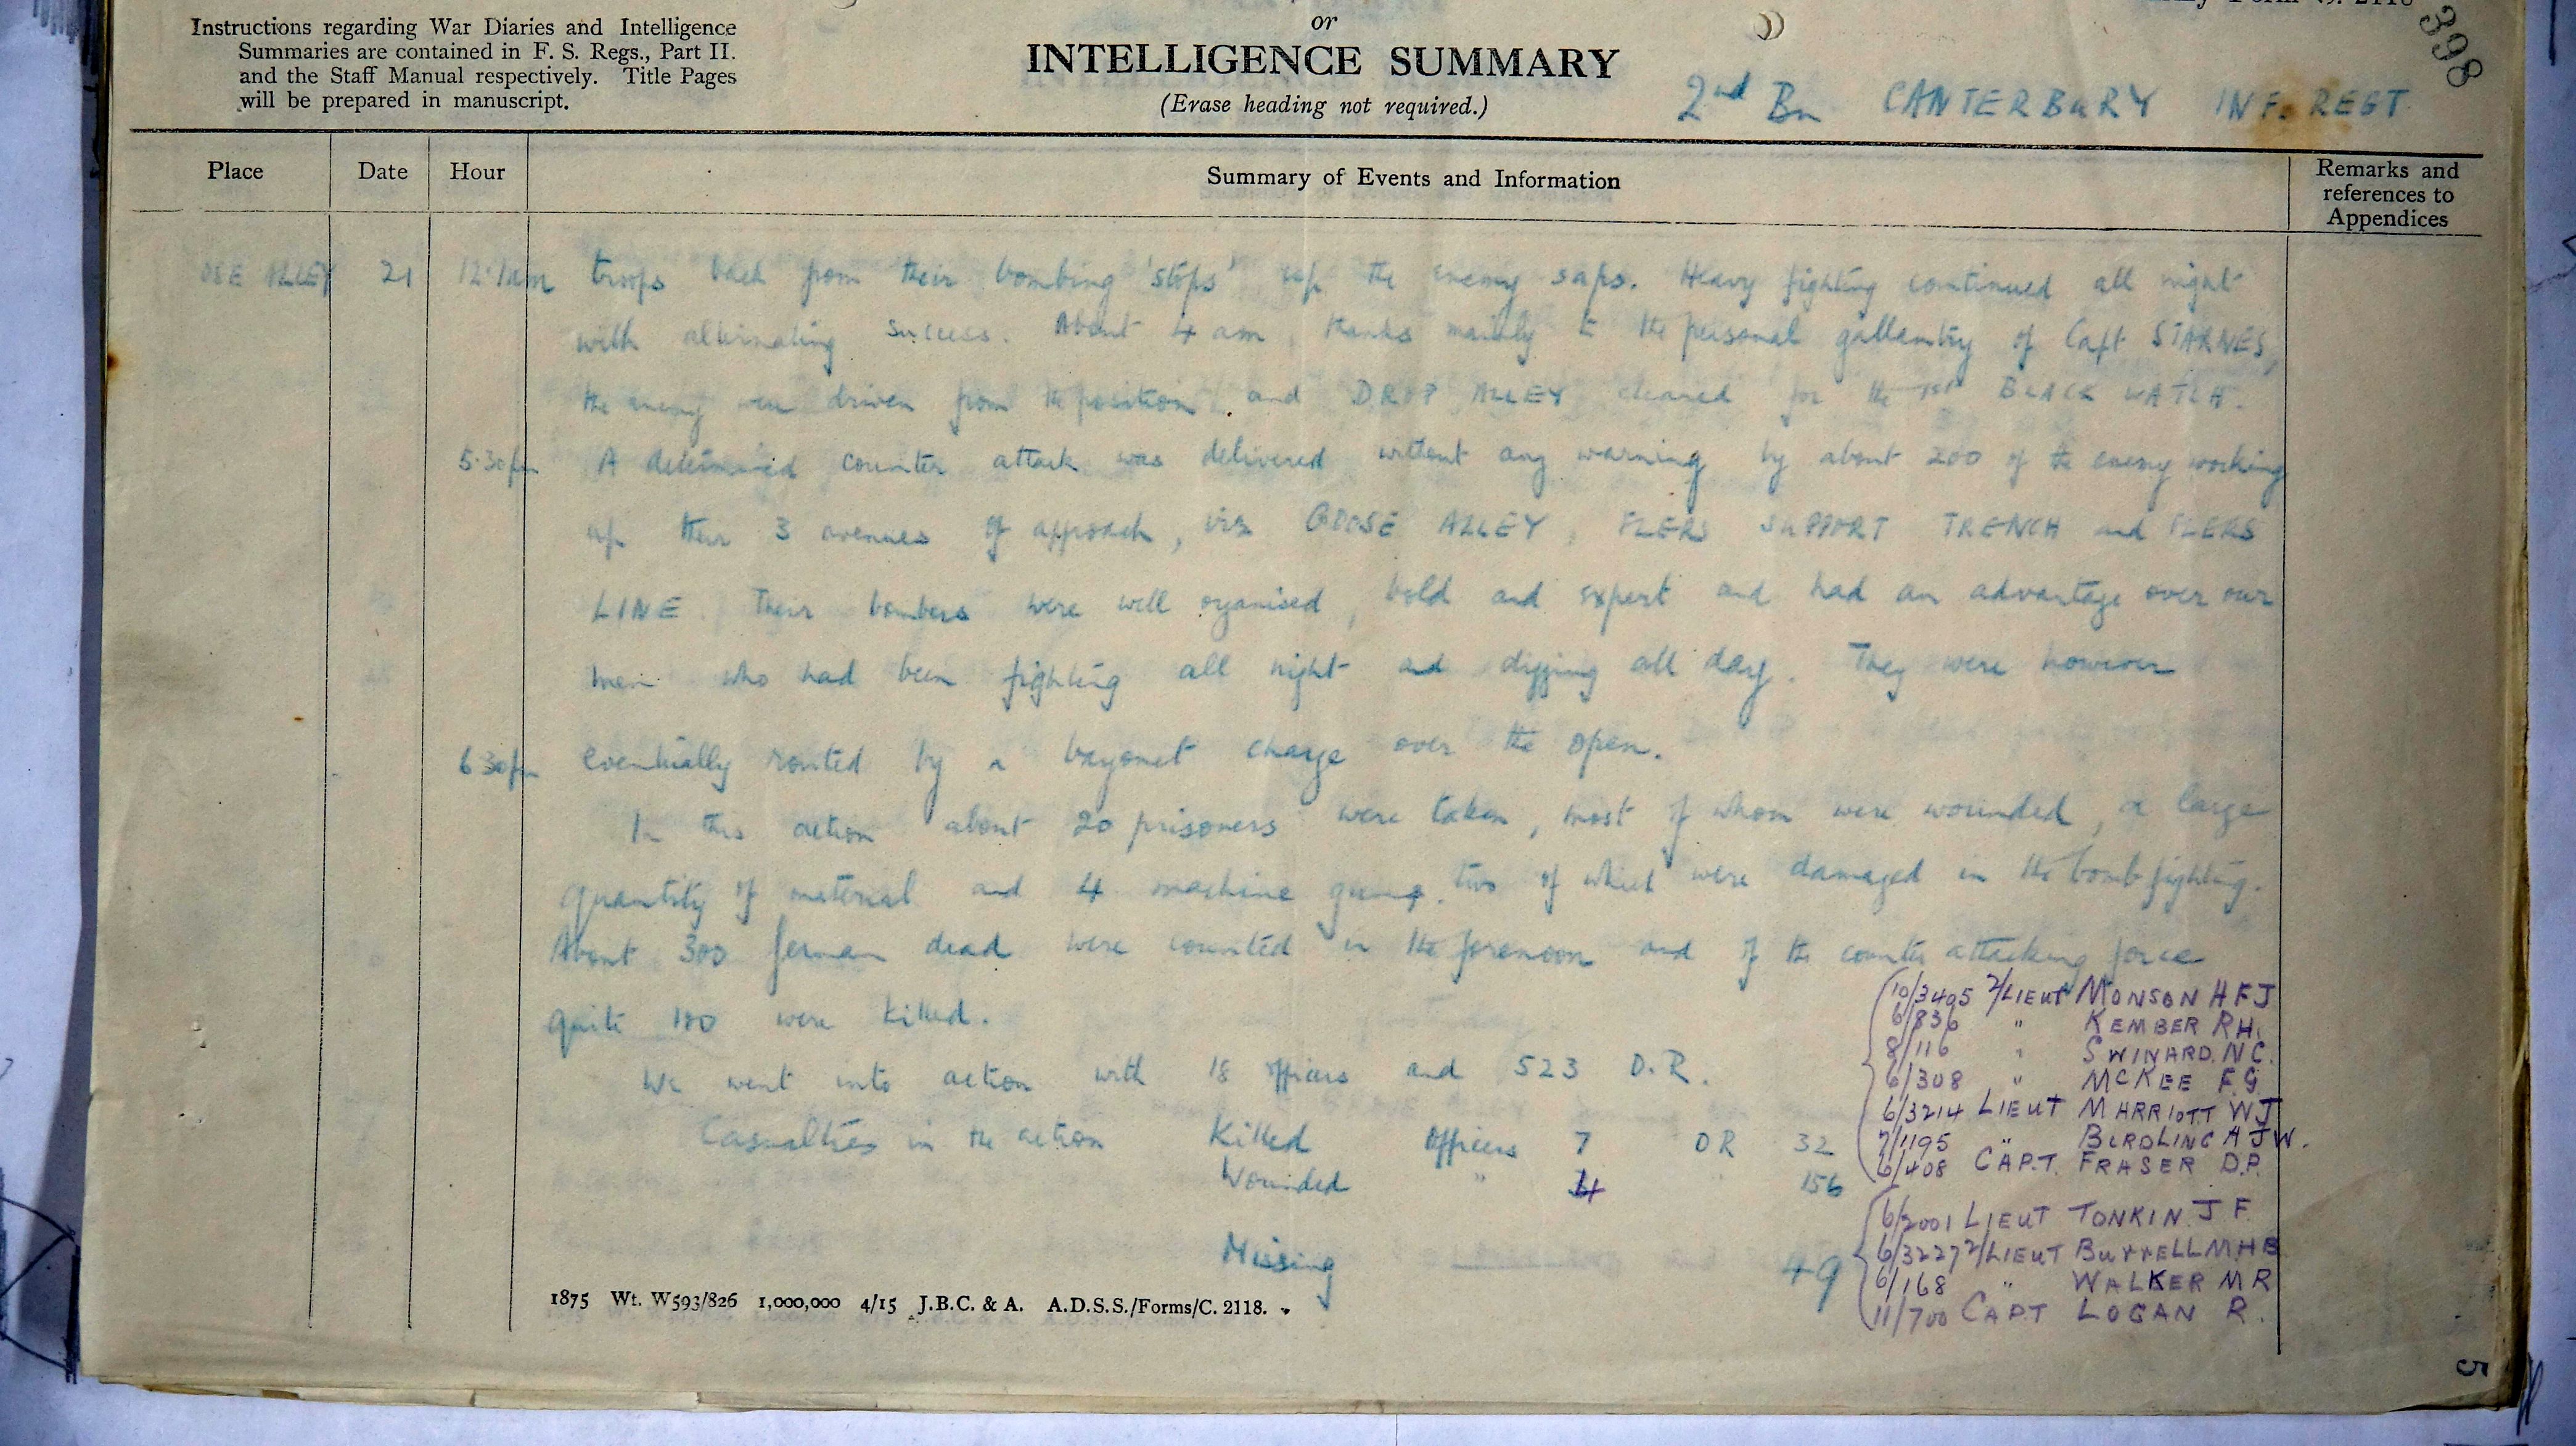 Instructions regarding War Diaries and Intelligence
Summaries are contained in F. S. Regs., Part II.
and the Staff Manual respectively. Title Pages
will be prepared in manuscript.
or
INTELLIGENCE SUMMARY
(Erase heading not required.)
398
2nd Bn CANTERBURY INF. REGT
Place Date Hour Summary of Events and Information Remarks and references to Appendices
OSE ALLEY 21 troops back from their bombing 'stops' up the enemy saps. Heavy fighting continued all night
with alternating success. About 4 am, thanks mainly to the personal gallantry of Capt STARNES,
the enemy were driven from the position, and DROP ALLEY cleared for the 1st BLACK WATCH.
5.30pm A determined counter attack was delivered without any warning by about 200 of the enemy working
up their 3 avenues of approach, viz GOOSE ALLEY, FLERS SUPPORT TRENCH and FLERS
LINE. Their bombers were well organised, bold and expert and had an advantage over our
men who had been fighting all night and digging all day. They were however
6 30pm eventually routed by a bayonet charge over the open.
In this action about 20 prisoners were taken, most of whom were wounded, a large
quantity of material and 4 machine guns, two of which were damaged in the bomb fighting.
About 300 german dead were counted in the forenoon and of the counter attacking force
quite were killed.
We went into action with 18 officers and 523 O.R.
Casualties in the action Killed Officers 7 OR 32
Wounded " 4 " 156
Missing 49
10/3495 2/LIEUT MONSON H F J
6/836 " KEMBER R H.
8/116 " SWINARD. N C.
6/308 " McKEE F. G
6/3214 LIEUT MARRIOTT W J
7/1195 " BIRDLING A J W.
6/408 CAPT. FRASER D.P.
6/2001 LIEUT TONKIN. J F.
6/3227 2/LIEUT M H B
6/168 " WALKER M R
11/700 CAPT LOGAN R.
1875 Wt. W593/826 1,000,000 4/15 J.B.C. & A. A.D.S.S./Forms/C. 2118.
5